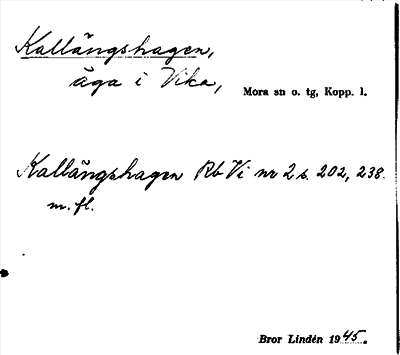 Kallängshagen,
äga i Vika, Mora sn o. tg, Kopp. l.
Kallängshagen Rb Vi nr 2 s. 202, 238.
m. fl.
Bror Lindén 1945.